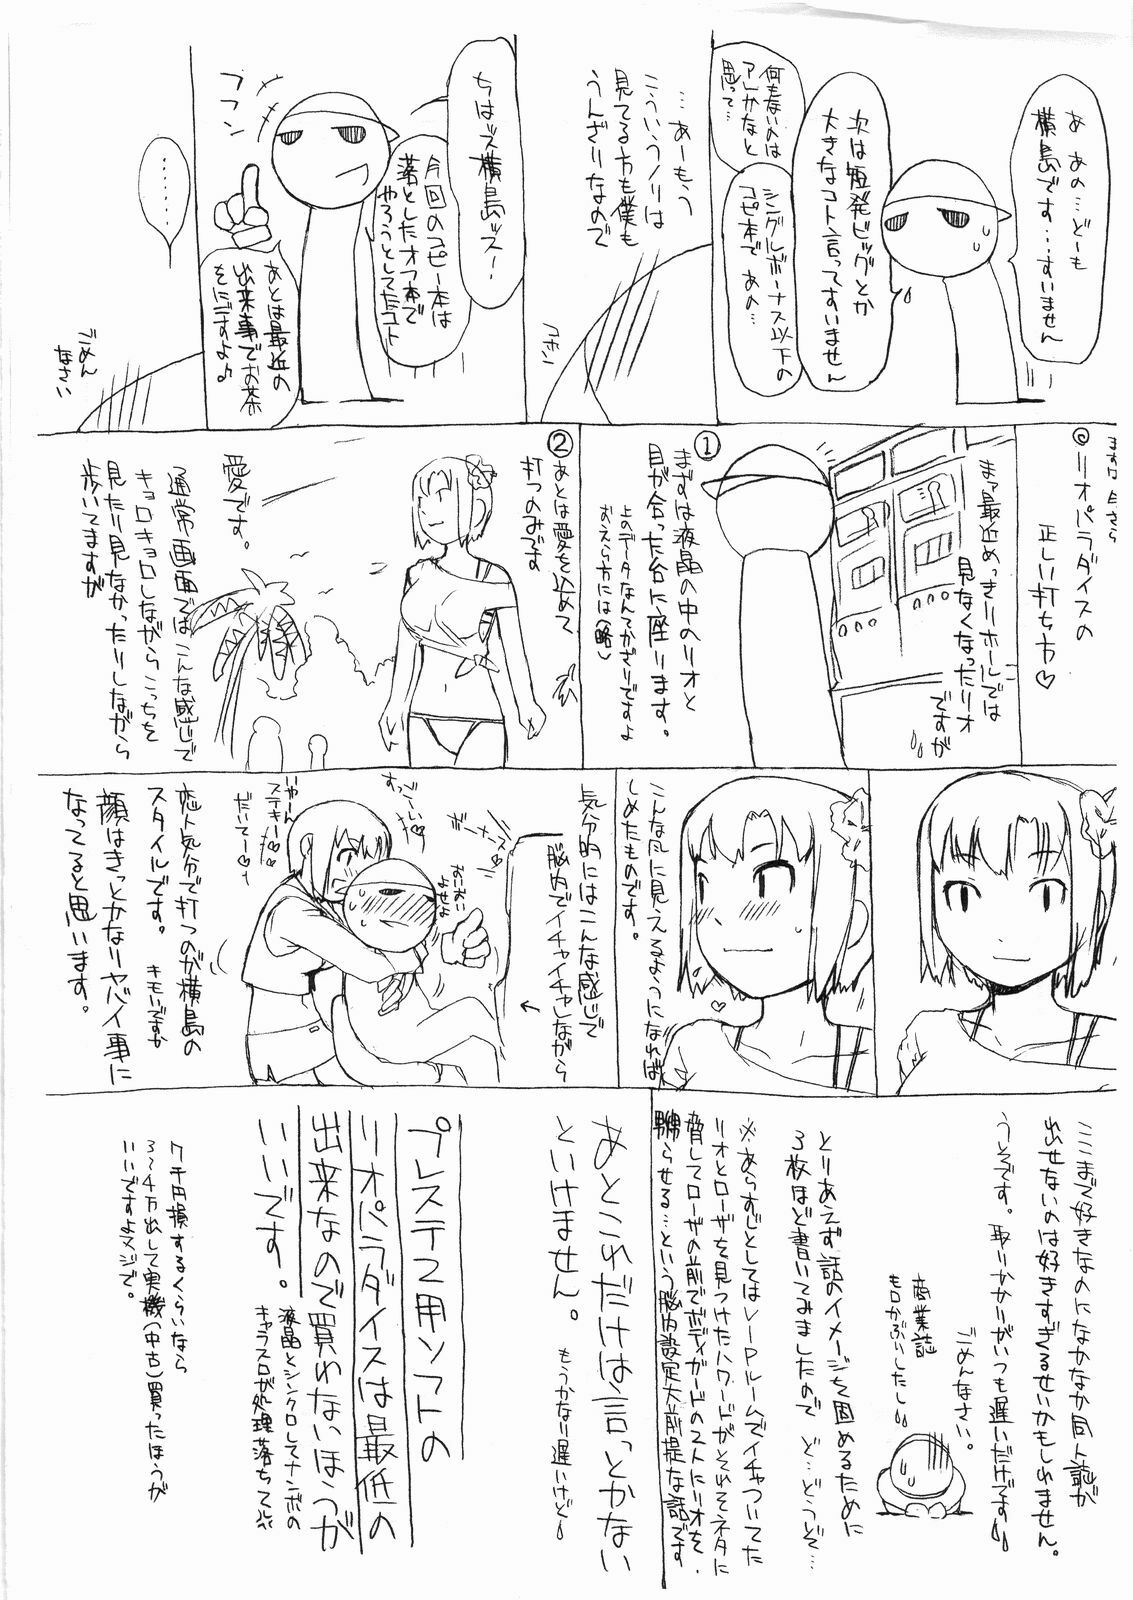 あ あの…どーも
横島です…すいません
次は短発ビッグとか
大きなコト言ってすいません
何もないのは
アレかなと
思って…
シングルボーナス以下の
コピ本で あの…
…あーもう
こういうノリは
見てる方も僕も
うんざりなので
コホン
ちはッス横島ッスー
今回のコピー本は
落としたオフ本で
やろうとしてたコト
フフン
あとは最近の
出来事でお茶
をにごすよ♪
………
ごめん
なさい
まずは今さら
◎リオパラダイスの
正しい打ち方♡
まァ最近めっきりホールでは
見なくなったリオ
ですが
①
まずは液晶の中のリオと
目が合った台に座ります。
上のデータなんてかざりですよ
おえら方には(略)
②
あとは愛を込めて
打つのみです
愛です。
通常画面ではこんな感じで
キョロキョロしながらこっちを
見たり見なかったりしながら
歩いてますが
こんな風に見えるようになれば
しめたものです。
気分的にはこんな感じで
脳内でイチャイチャしながら
ボーナスー
おこおこ
まかせよ
すっごーいい♡
いやーん
ステキー♡♡
だいてー♡
恋人気分で打つのが横島の
スタイルです。 キモいですか
顔はきっとかなりヤバイ事に
なってると思います。
ここまで好きなのになかなか同人誌が
出せないのは好きすぎるせいかもしれません。
うそです。取りかかりがいつも遅いだけです
ごめんなさい。
商業誌
もロかぶりしたし
とりあえず話のイメージを固めるために
3枚ほど書いてみましたので ど…どうぞ…
※あらすじとしてはVIPルームでイチャついてた
リオとローザを見つけたハワードがそれをネタに
脅してローザの前でボディガードのストにリオを
嬲らせる…という脳内設定大前提な話です.
あとこれだけは言っとかない
といけません。 もうかなり遅いけど
プレステ2用ソフトの
リオパラダイスは最低の
出来なので買わないほうが
いいです。
液晶とシンクロしてナンボの
キャラスロが処理落ちって
7千円損するくらいなら
3〜4万出して実機(中古)買ったほうが
いいですよマジで。